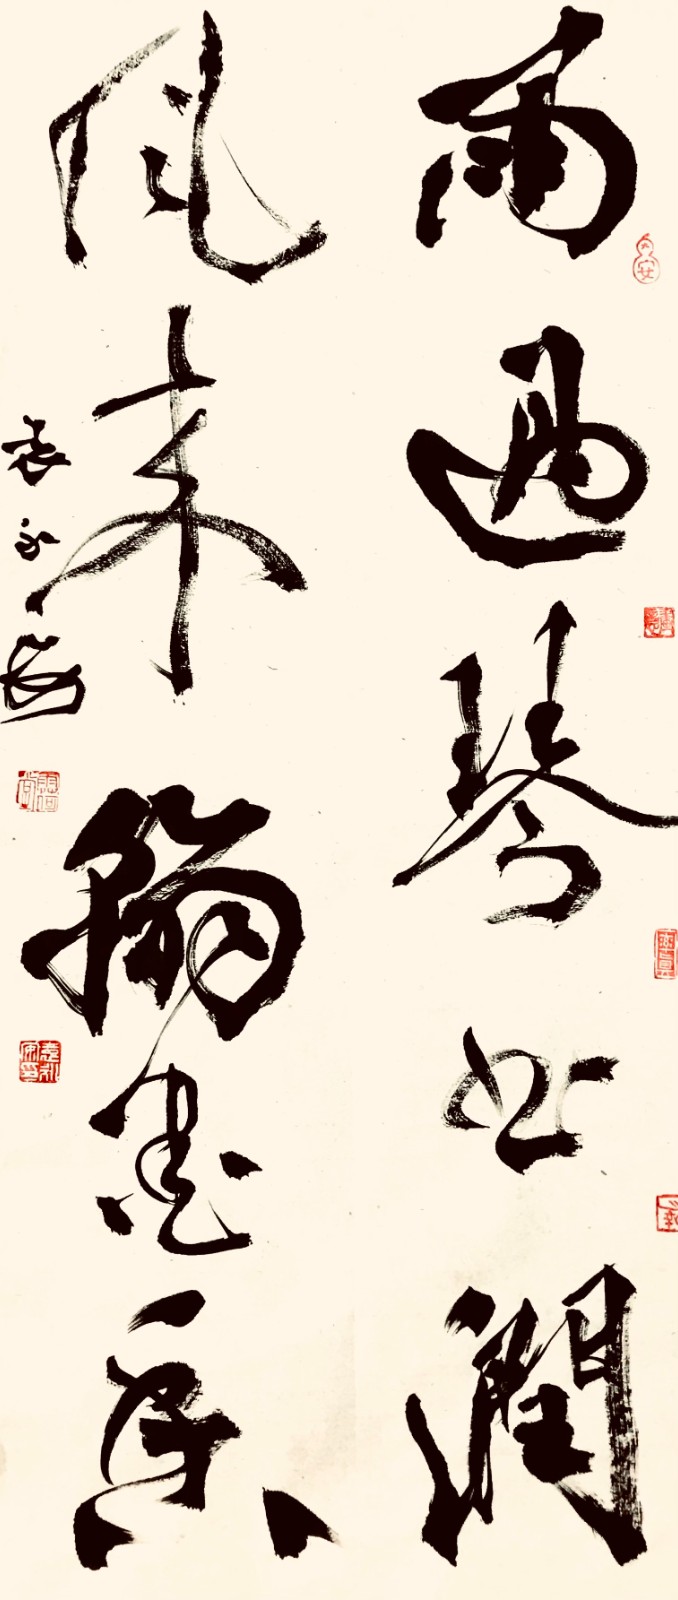 雨過琴書潤
風來翰墨香
袁